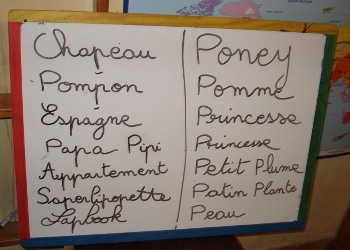 Chapeau
Pompon
Espagne
Papa Pipi
Appartement
Saperlipopette
Lapbook
Poney
Pomme
Princesse
Princesse
Petit Plume
Patin Plante
Peau